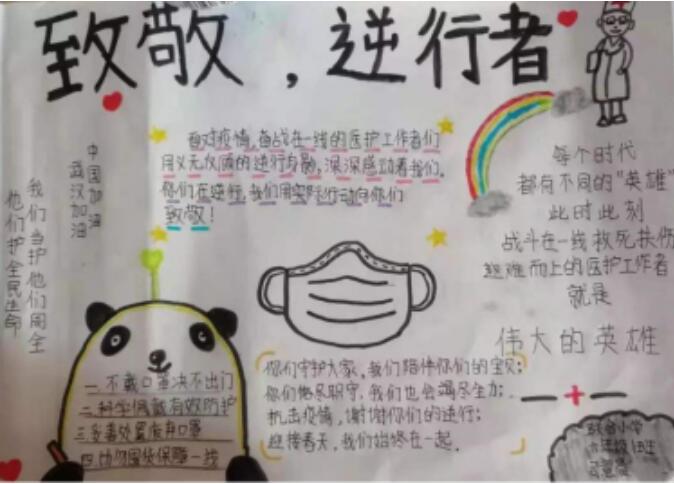 致敬，逆行者
面对疫情，奋战在一线的医护工作者们
用义无反顾的逆行身影，深深感动着我们。
你们在逆行，我们用实际行动向你们
致敬！
中国加油
武汉加油
我们当护他们周全
他们护全民生命
每个时代
都有不同的"英雄"
此时此刻
战斗在一线救死扶伤
迎难而上的医护工作者
就是
伟大的英雄
一、不戴口罩决不出门
二、科学佩戴有效防护
三、妥善处置废弃口罩
四、切勿囤货保障一线
你们守护大家，我们陪伴你们的宝贝；
你们恪尽职守，我们也会竭尽全力；
抗击疫情，谢谢你们的逆行；
迎接春天，我们始终在一起。
小学
六年级1班